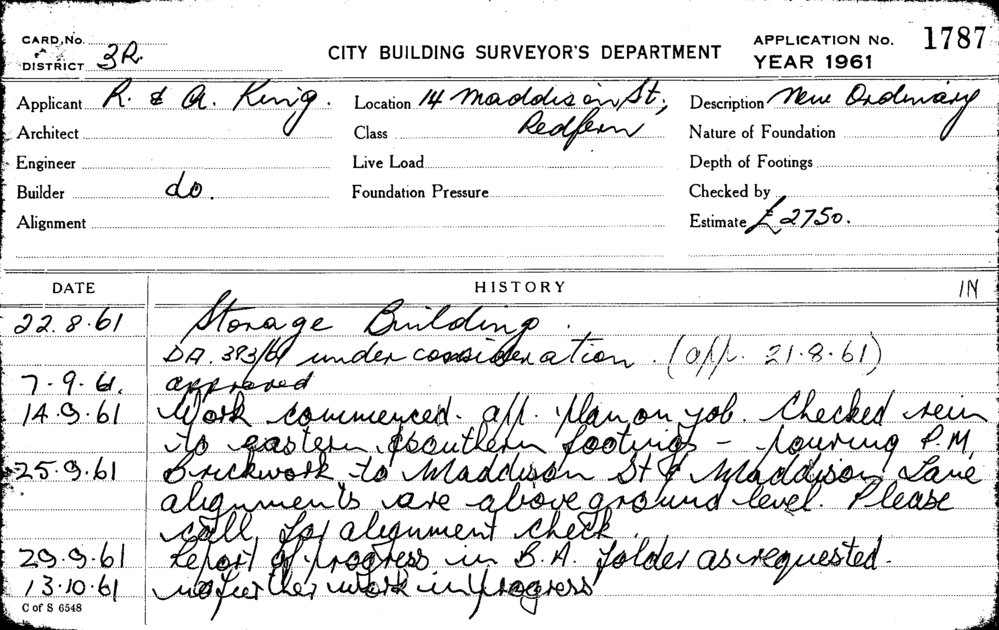 CARD No. CITY BUILDING SURVEYOR'S DEPARTMENT APPLICATION No. 1787
DISTRICT 3R. YEAR 1961
Applicant R. & A. King. Location 14 Maddison St, Description New Ordinary
Architect Class Redfern Nature of Foundation
Engineer Live Load Depth of Footings
Builder do. Foundation Pressure Checked by
Alignment Estimate £2750.
DATE HISTORY IN
22.8.61 Storage Building.
DA. 393/61 under consideration. (app. 21.8.61)
7.9.61. approved
14.9.61 Work commenced. app. plan on job. Checked rein
to eastern & southern footings - pouring P.M.
25.9.61 Brickwork to Maddison St & Maddison Lane
alignments are above ground level. Please
call for alignment check.
29.9.61 Report of progress in B.A. folder as requested.
13.10.61 no further work in progress
C of S 6548